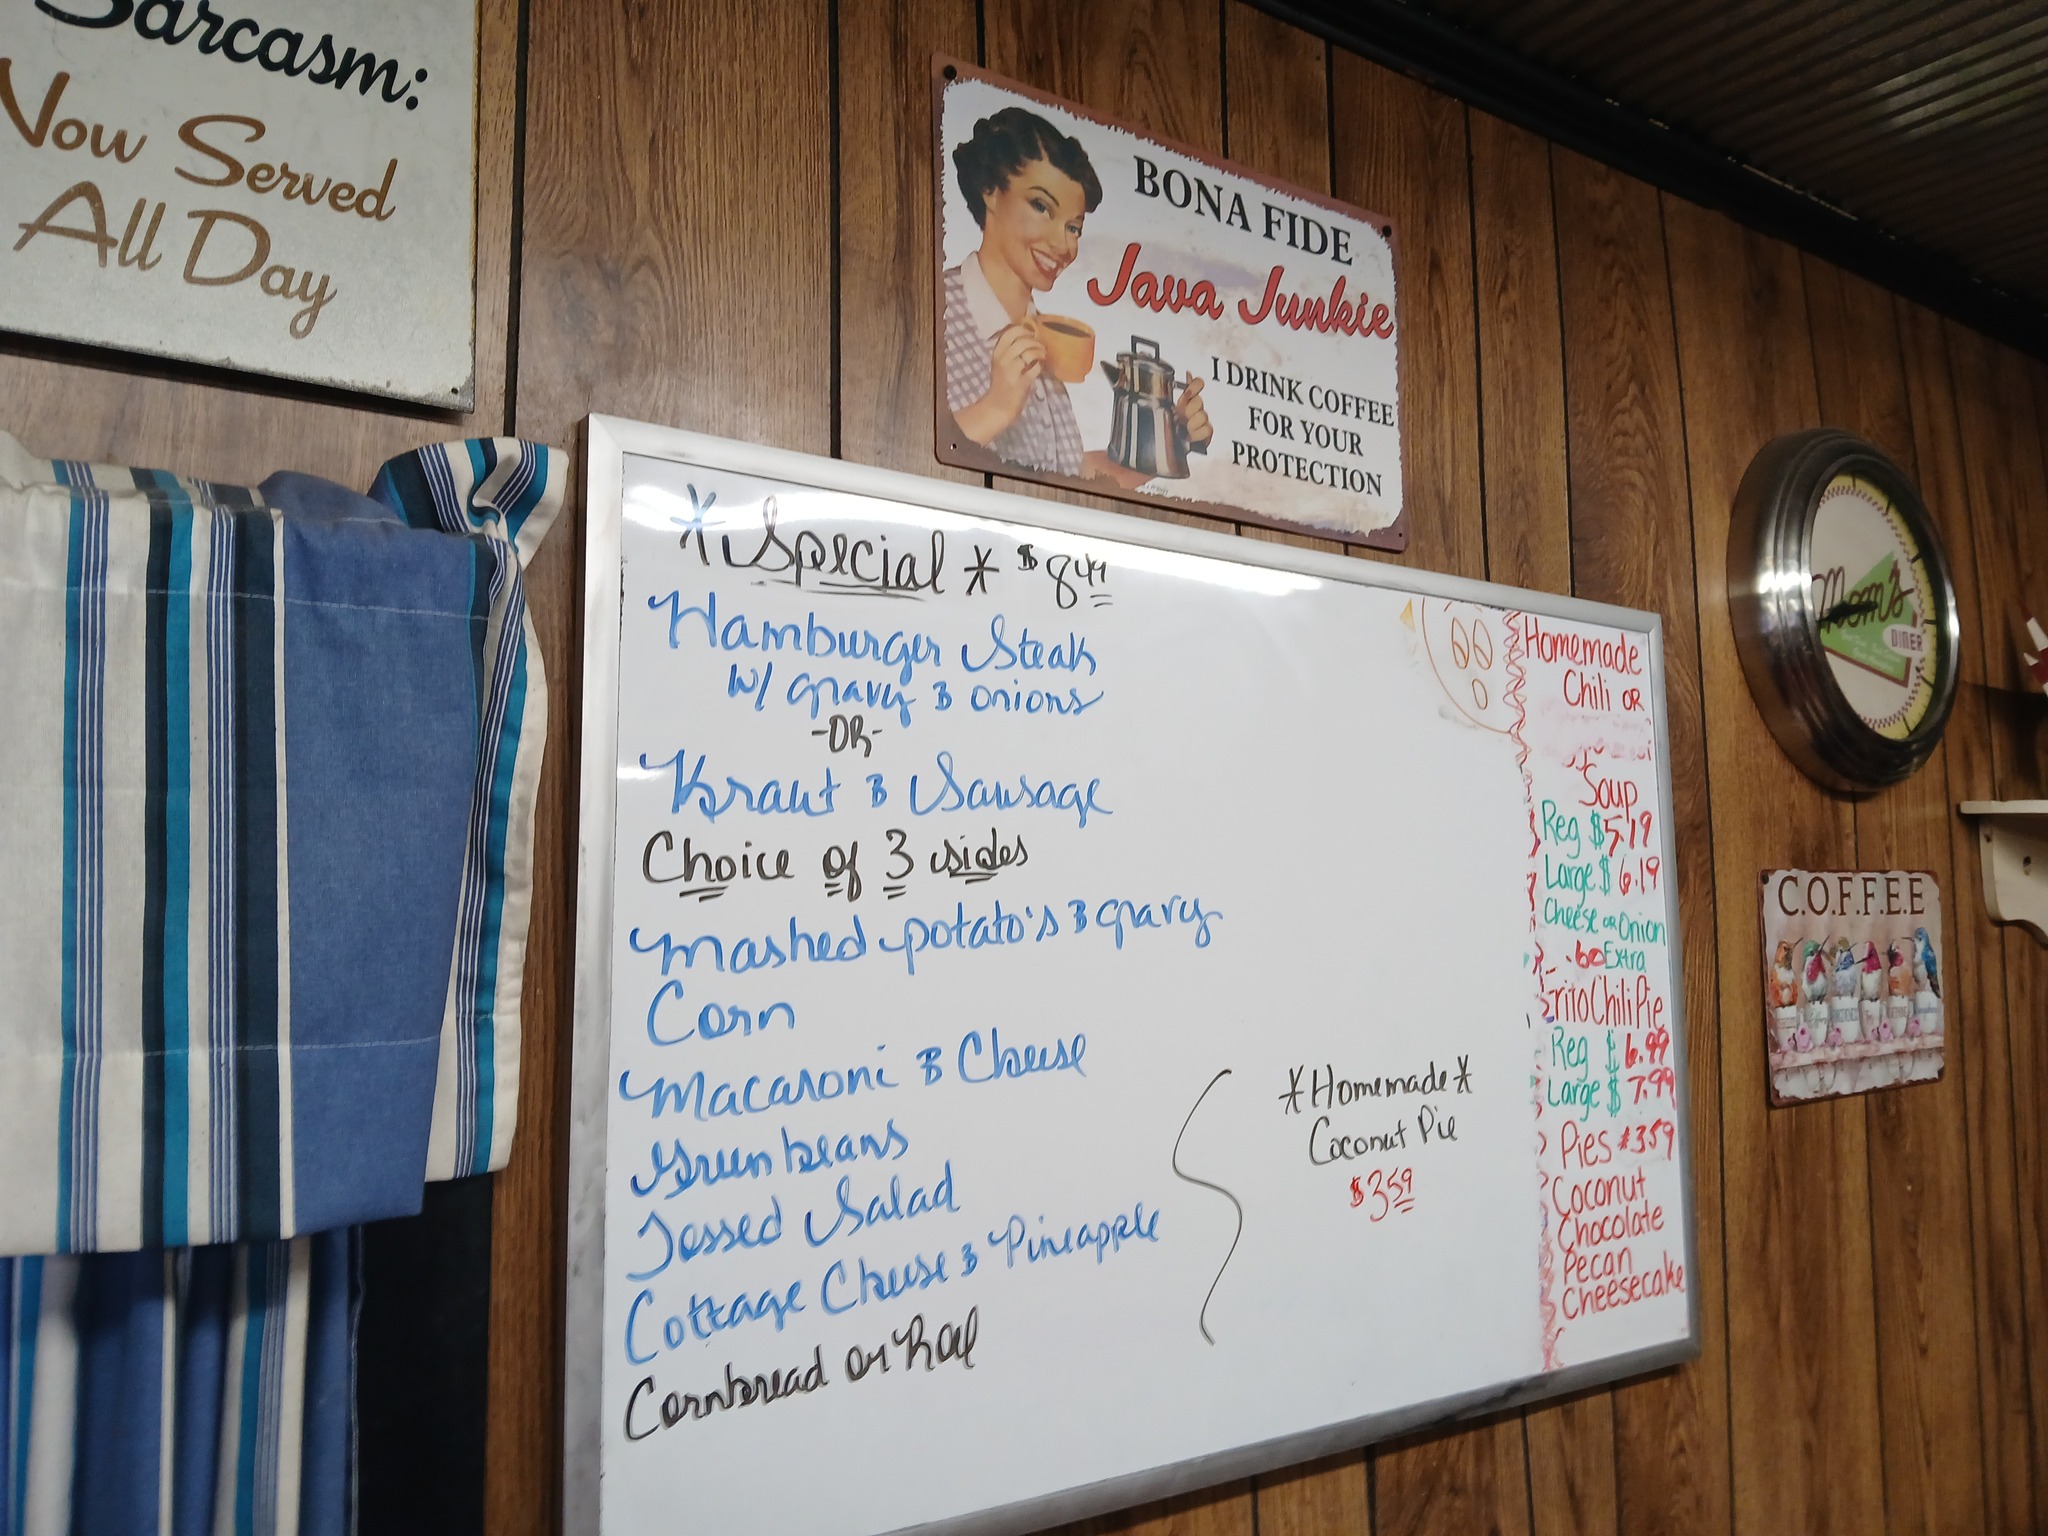 Sarcasm:
Now Served
All Day
BONA FIDE
Java Junkie
I DRINK COFFEE
FOR YOUR
PROTECTION
*Special* $8.49
Hamburger Steak
w/ gravy & onions
-OR-
Kraut & Sausage
Choice of 3 sides
Mashed potato's & gravy
Corn
Macaroni & Cheese
Green beans
Tossed Salad
Cottage Cheese & Pineapple
Cornbread or Roll
*Homemade*
Coconut Pie
$3.59
Homemade
Chili OR
Soup
Reg $5.19
Large $6.19
Cheese OR Onion
.60 Extra
Frito Chili Pie
Reg $6.99
Large $7.99
Pies $3.59
Coconut
Chocolate
Pecan
Cheesecake
Mom's
DINER
C.O.F.F.E.E